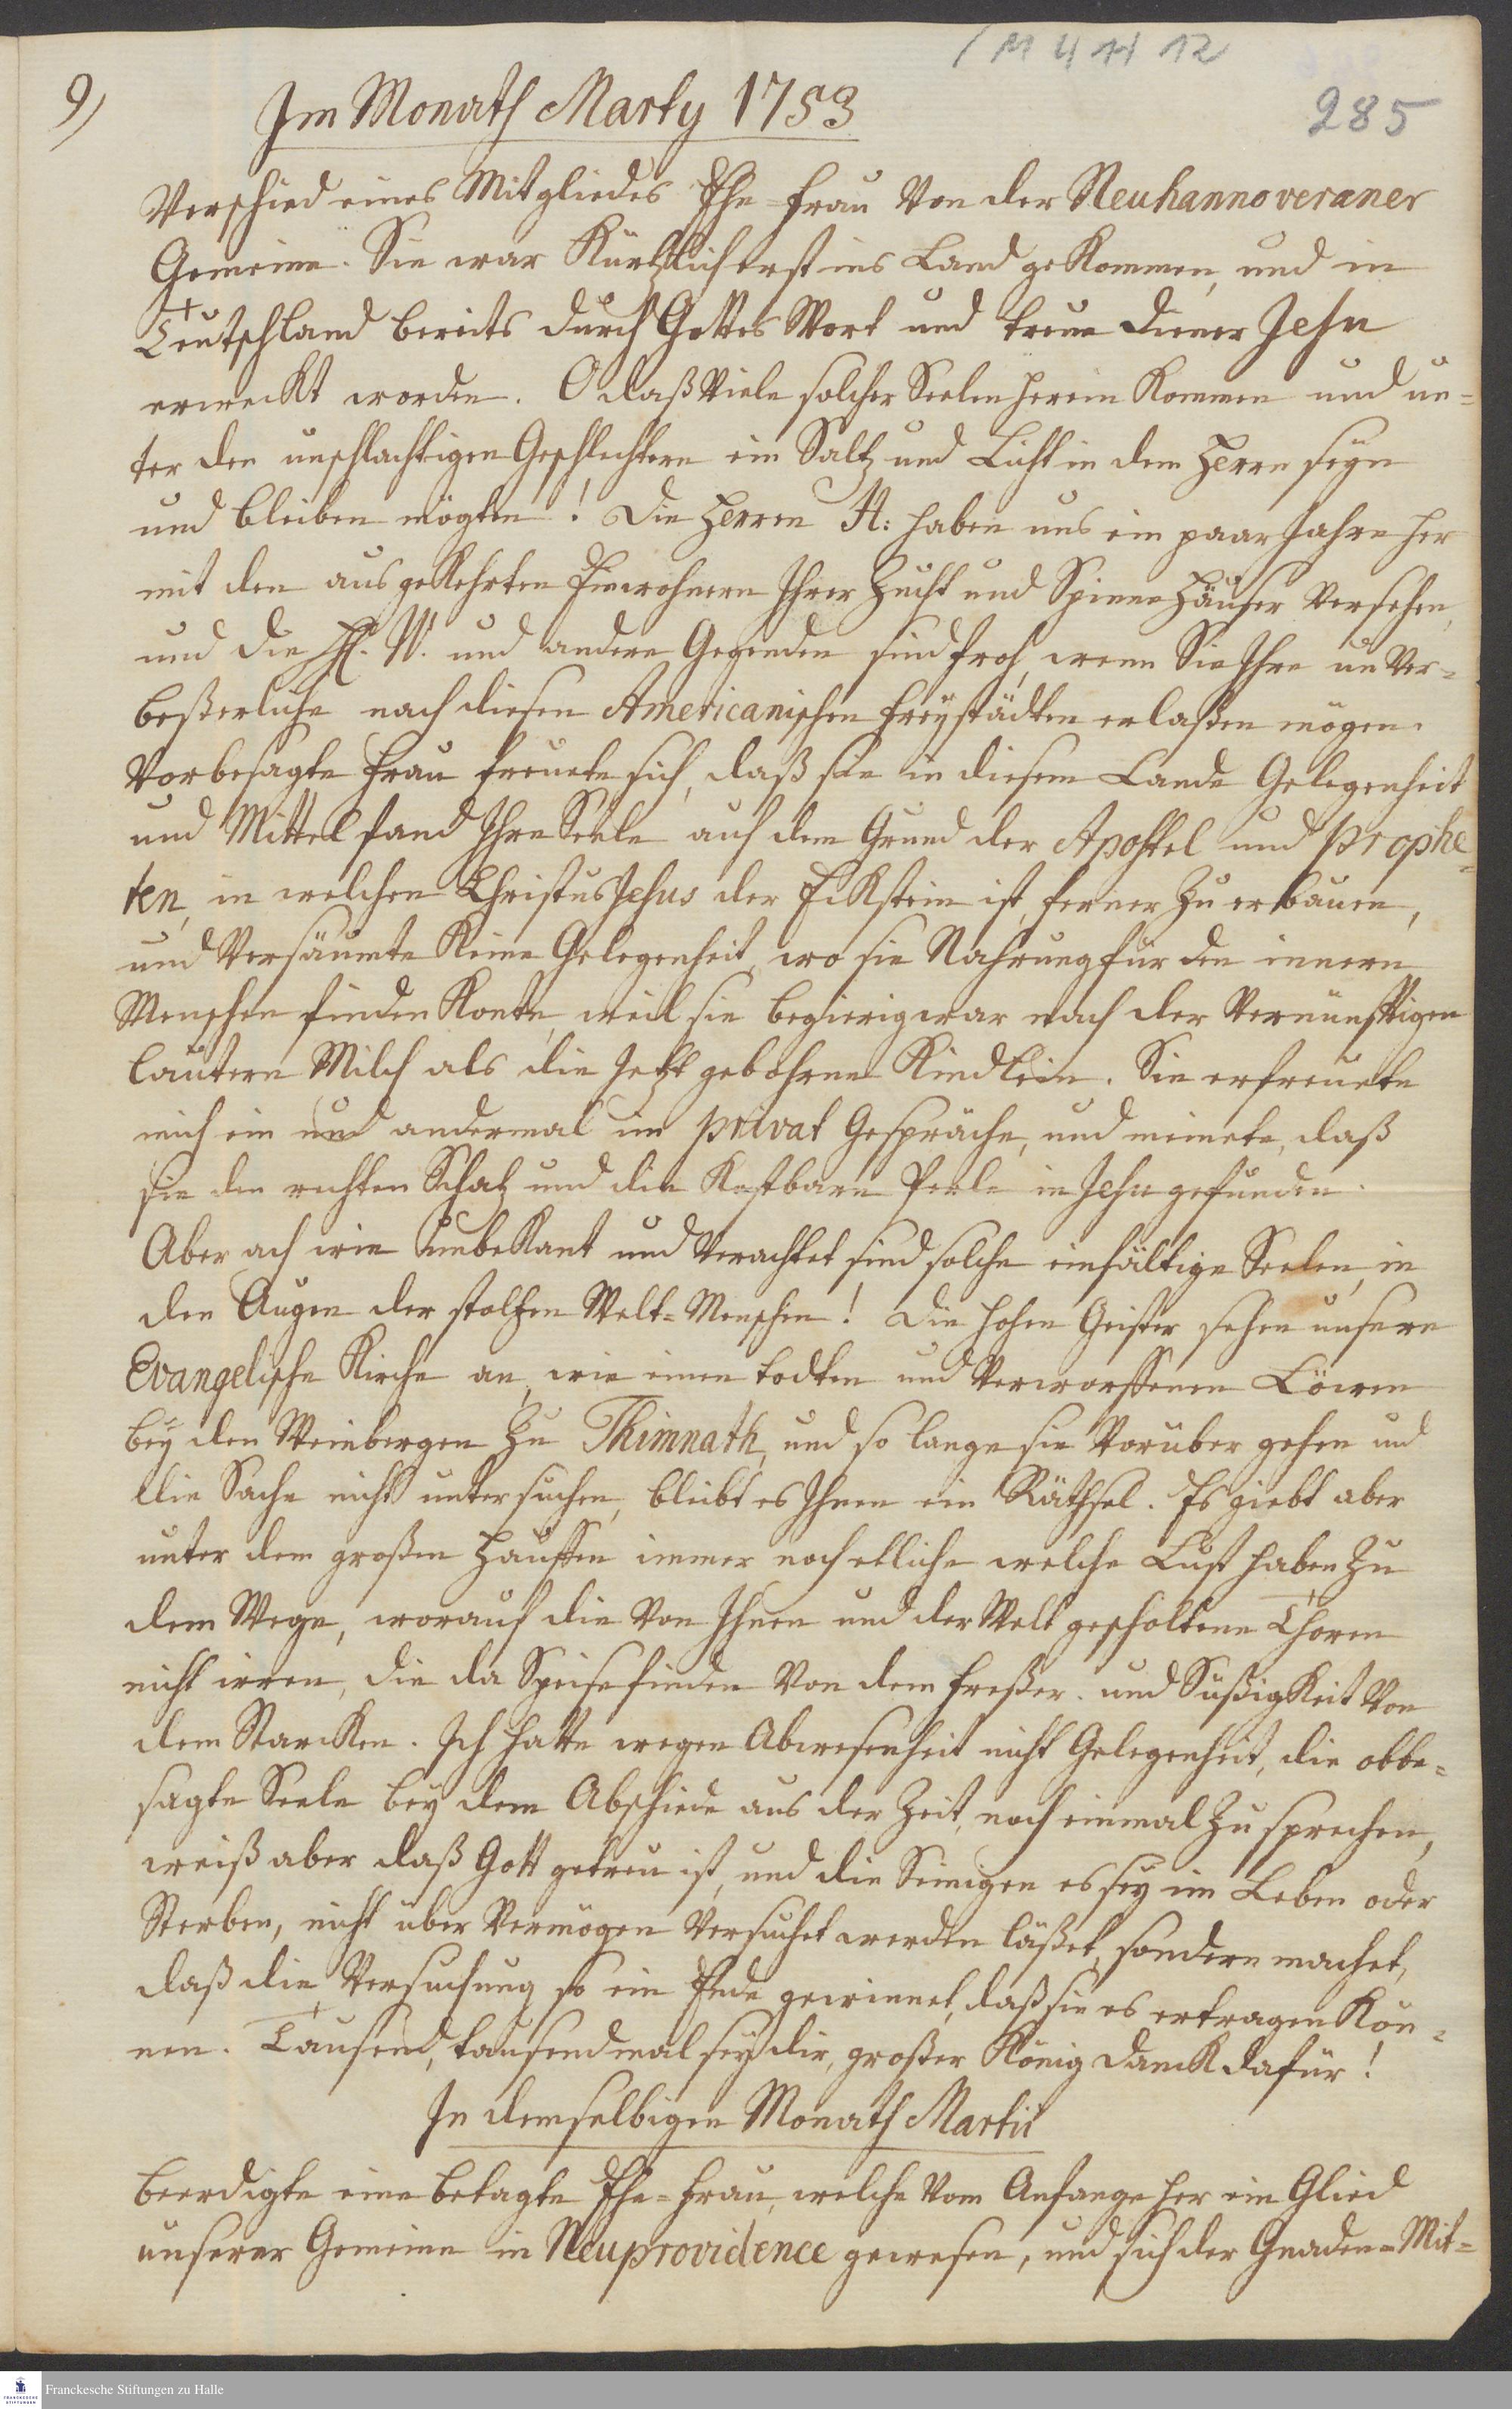 / M 4 H 12
9)
Im Monath Marty 1753
285
Verschied eines Mitgliedes Ehe-Frau von der Neuhannoveraner
Gemeine. Sie war Kürtzlich erst ins Land geKommen, und in
Teutschland bereits durch Gottes Wort und treue Diener Jesu
erweckt worden. O daß Viele solcher Seelen herein Kommen und un-
ter den unschlachtigen Geschlechtern ein Saltz und Licht in dem Herrn seyn
und bleiben mögten! Die Herren H: haben uns ein paar Jahre her
mit den ausgeKehrten Einwohnern Ihrer Zucht und Spinn Häuser Versehen,
und die HH. W. und andere Gegenden sind froh, wenn Sie Ihre un Ver-
beßerliche nach diesen Americanischen Freystädten erlaßen mögen.
Vorbesagte Frau freuete sich, daß sie in diesem Lande Gelegenheit
und Mittel fand Ihre Seele auf den Grund der Apostel und Prophe-
ten, in welchen Christus Jesus der EcKstein ist, ferner zu erbauen,
und Versäumte Keine Gelegenheit, wo sie Nahrung für den innern
Menschen finden Konte, weil sie begierig war nach der Vernünfftigen
lautern Milch als die Jetzt gebohrne Kindlein. Sie erfreuete
mich ein und andermal im privat Gespräche, und meinete, daß
sie den rechten Schatz und die Kostbare Perle in Jesu gefunden.
Aber ach wie unbeKant und Verachtet sind solche einfältige Seelen, in
den Augen der stoltzen Welt-Menschen! Die hohen Geister sehen unsere
Evangelische Kirche an, wie einen todten und Verworffenen Löwen
bey den Weinbergen zu Thimnath, und so lange sie Vorüber gehen und
die Sache nicht untersuchen, bleibt es Ihnen ein Räthsel. Es giebt aber
unter dem großen Hauffen immer noch etliche welche Lust haben zu
dem Wege, worauf die Von Ihnen und der Welt gescholtene Thoren
nicht irren, die da Speise finden Von dem Freßer. und SüßigKeit Von
dem StarcKen. Ich hatte wegen Abwesenheit nicht Gelegenheit, die obbe-
sagte Seele bey dem Abschiede aus der Zeit, noch einmal zu sprechen,
weiß aber daß Gott getreu ist, und die Seinigen es sey im Leben oder
Sterben, nicht über Vermögen Versuchet werden läßet, sondern machet,
daß die Versuchung so ein Ende gewinnet, daß sie es ertragen Kön-
nen. Tausend, tausendmal sey dir, großer König DancK dafür!
In demselbigen Monath Martii
Beerdigte eine betagte Ehe-Frau, welche Vom Anfange her ein Glied
unserer Gemeine in Neuprovidence gewesen, und sich der Gnaden-Mit-
Franckesche Stiftungen zu Halle
FRANCKESCHE STIFTUNGEN